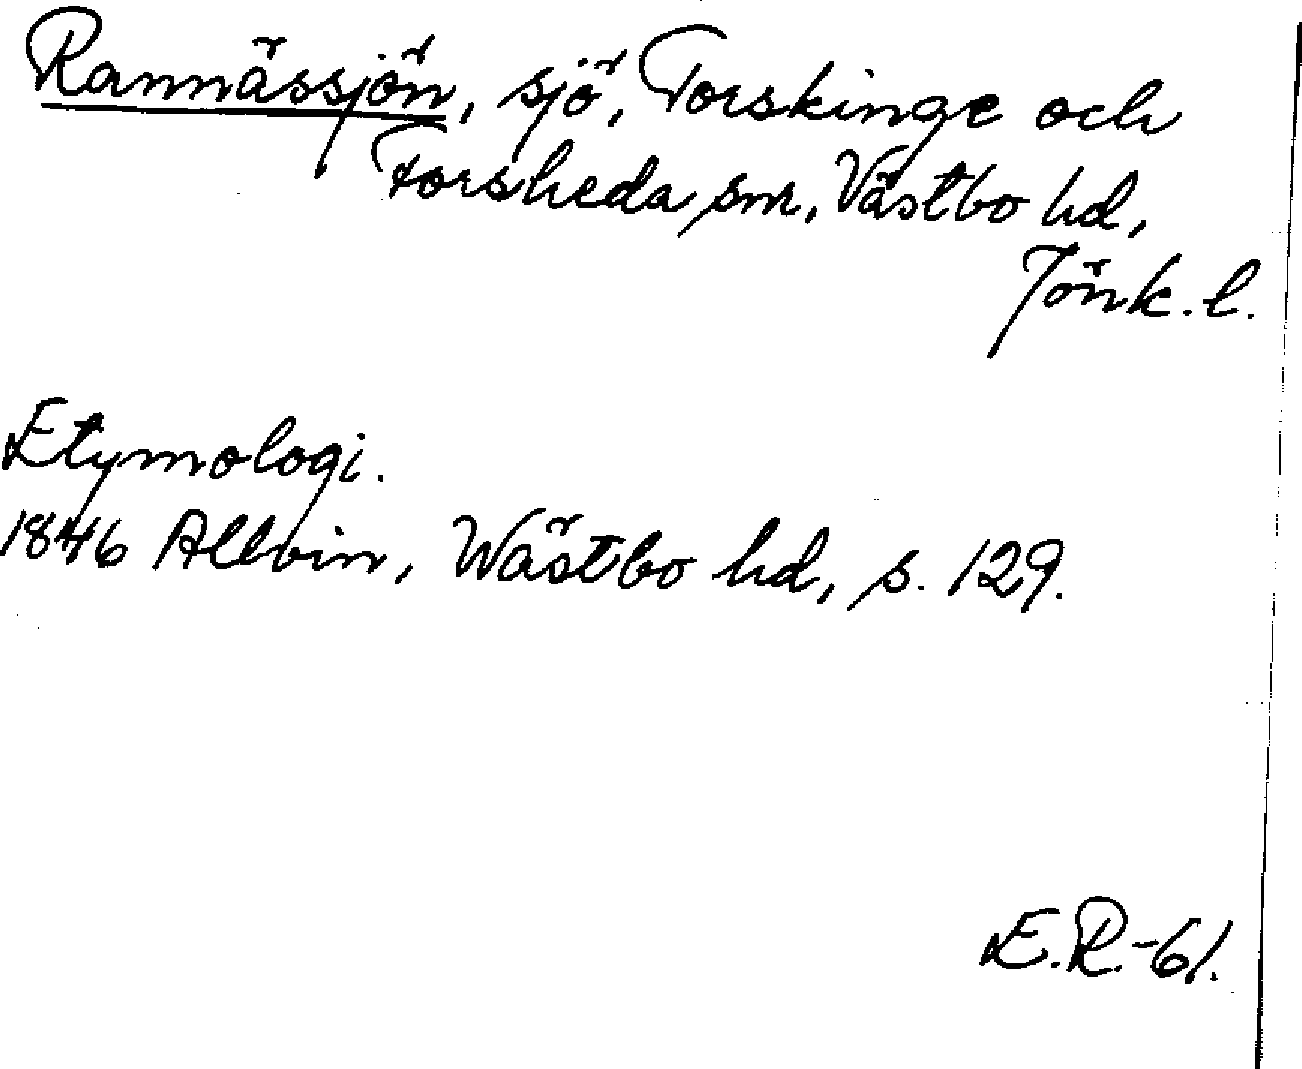 Rannässjön, sjö, Torskinge och
Forsheda snr, Västbo hd,
Jönk. l.
Etymologi.
1846 Allvin, Wästbo hd, s. 129.
E.R.-61.